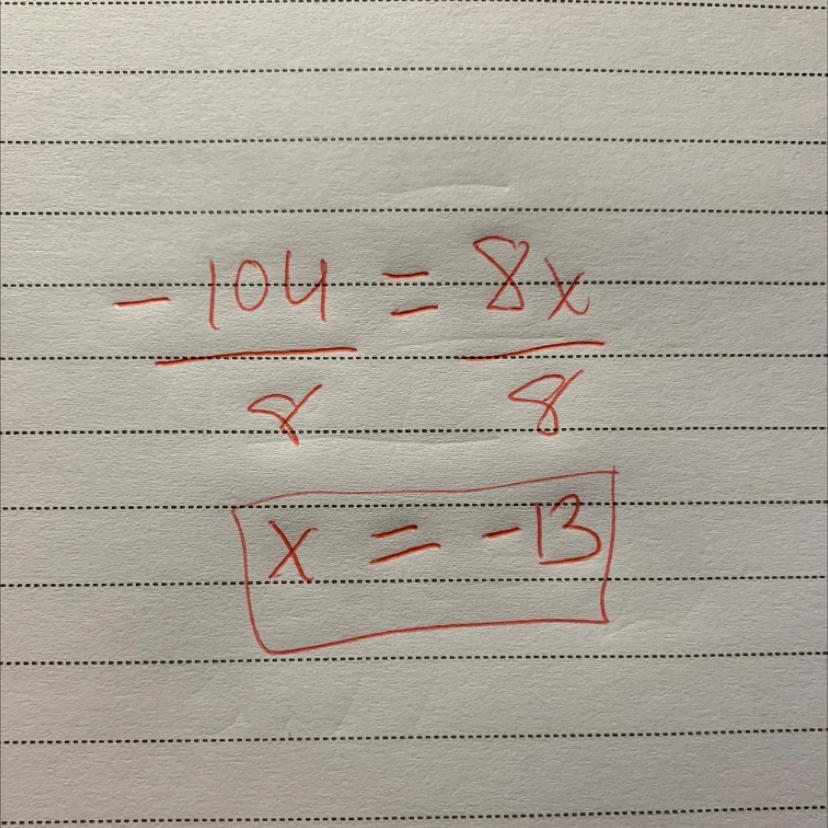 -104 = 8x
8 8
x = -13